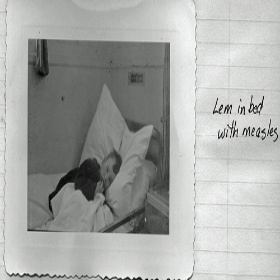 Lem in bed
with measles